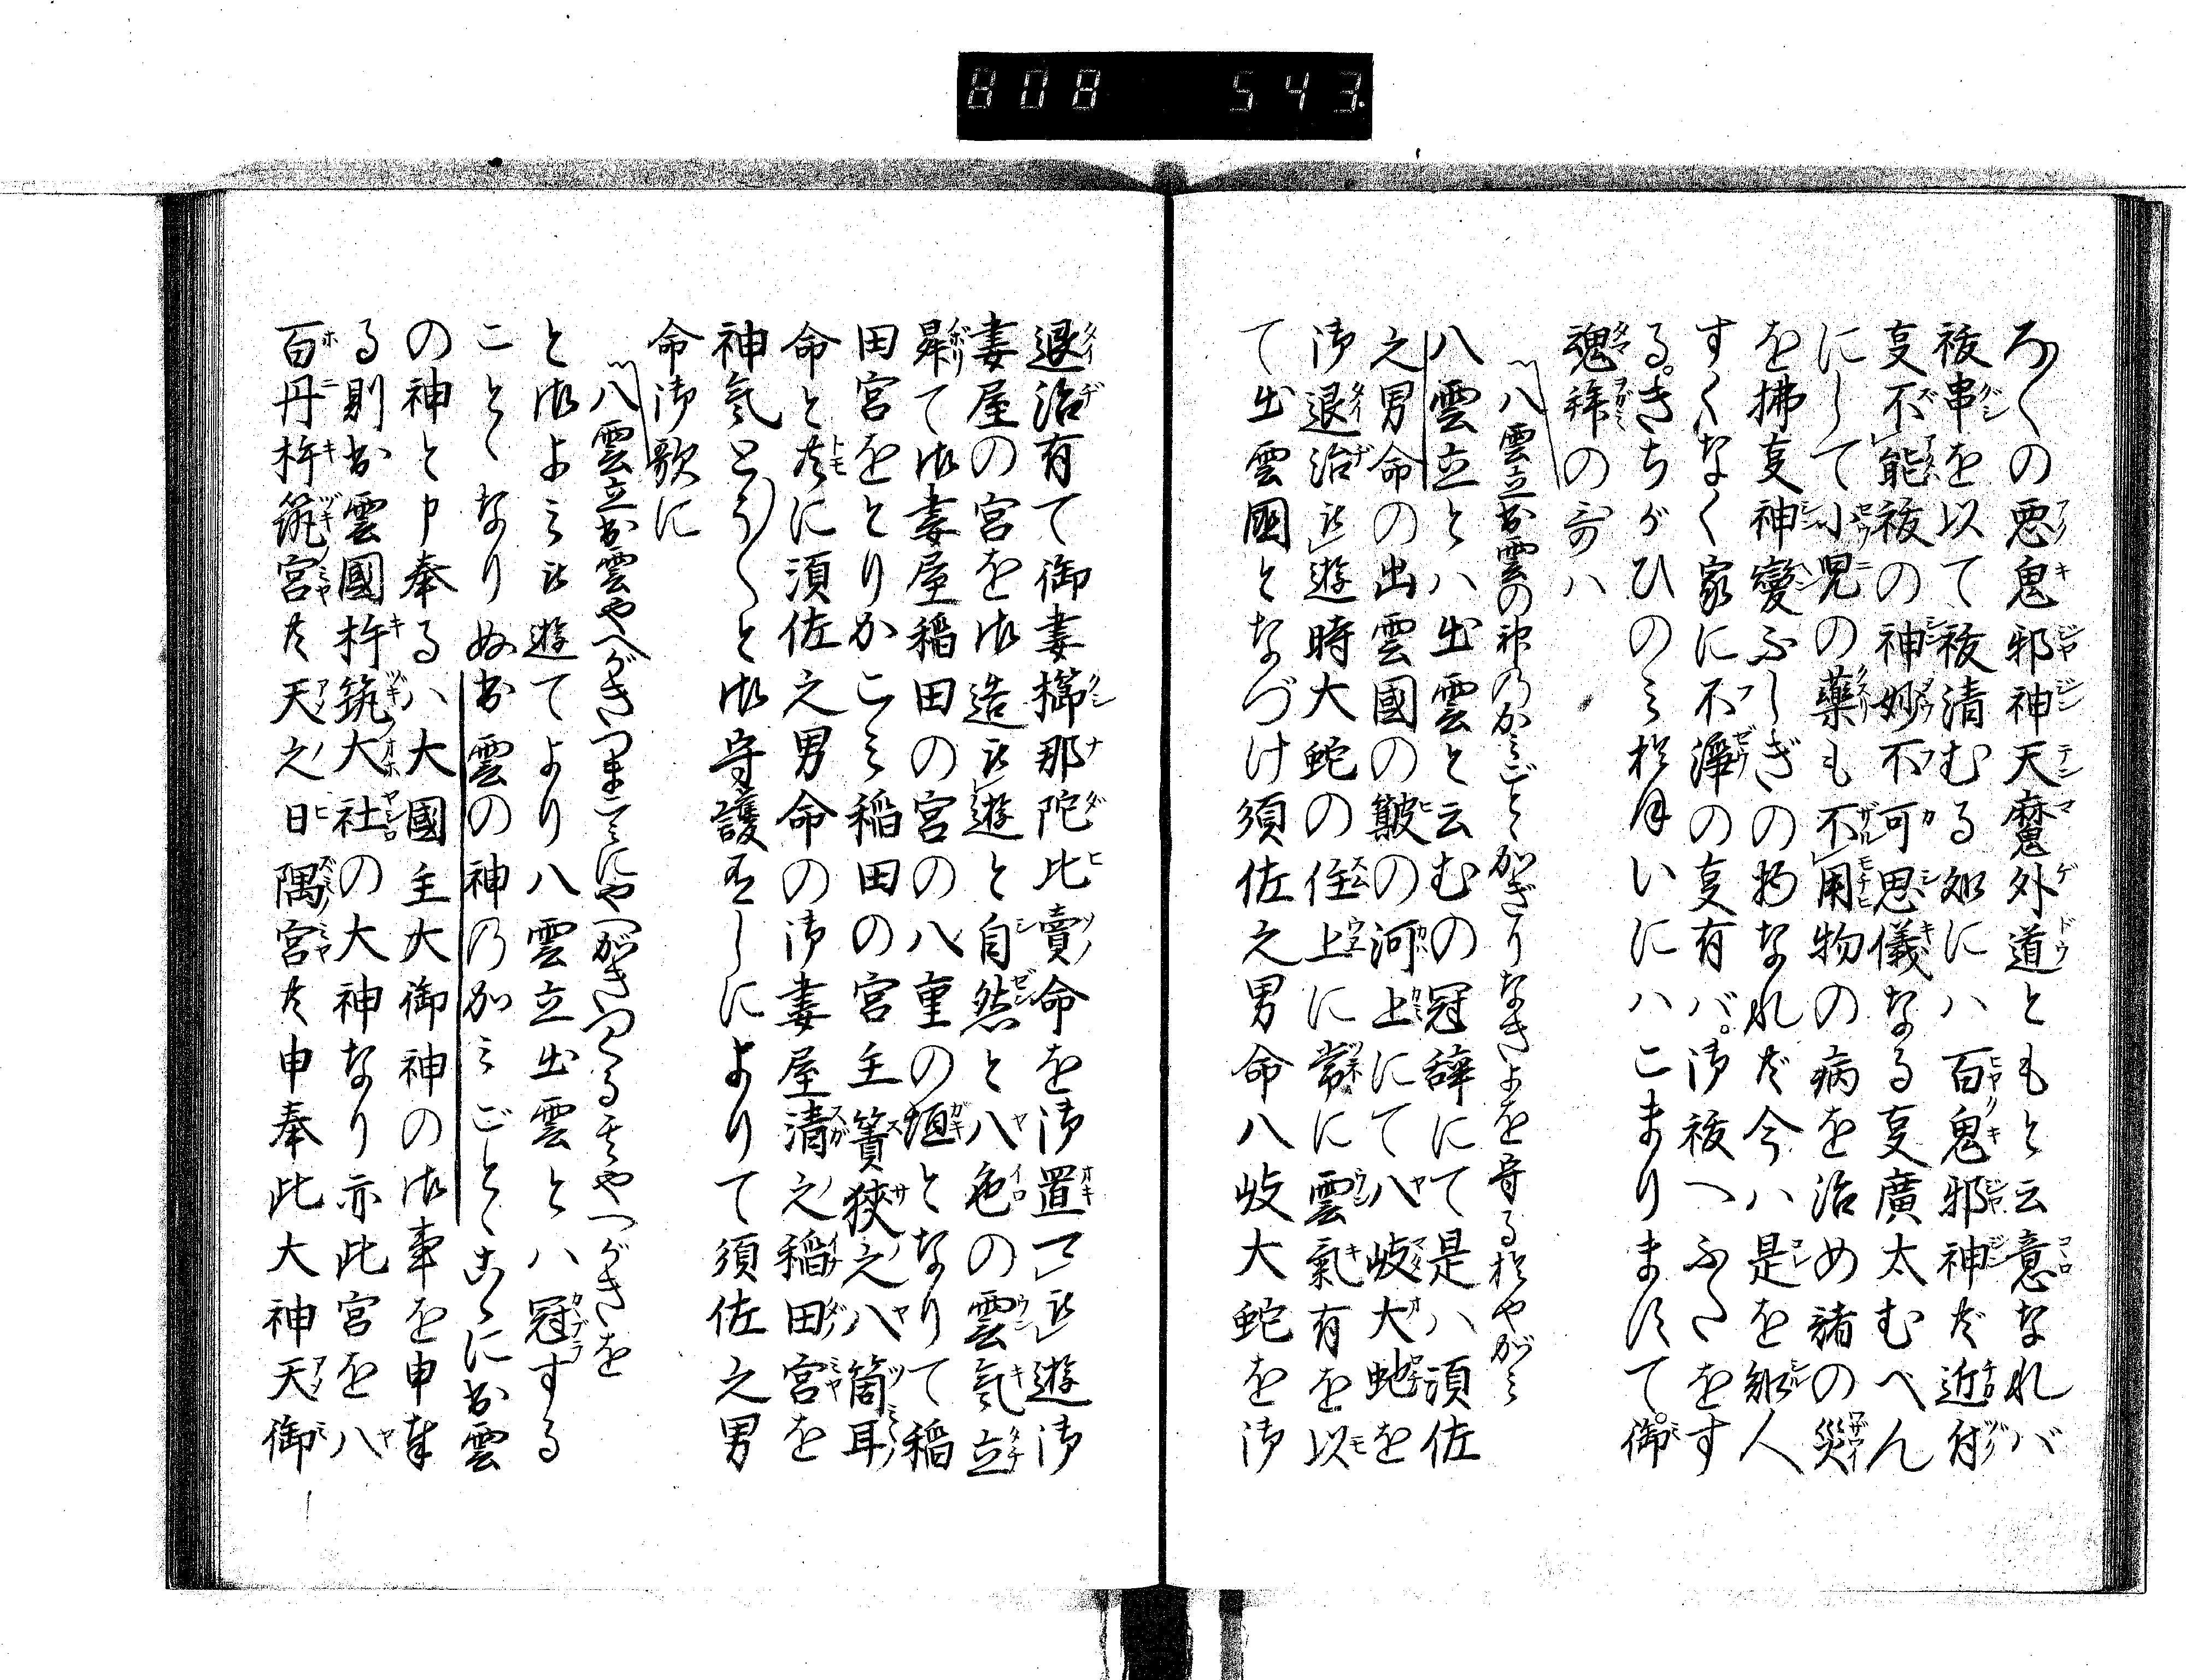 808 543.
ろ〳〵の悪鬼邪神天魔外道ともと云意なれバ
祓串を以て祓清むる処にハ百鬼邪神共近付
事不能祓の神妙不可思儀なる事廣太むへん
にして小児の薬も不用物の病を治め諸の災
を拂事神變ふしぎの物なれ共今ハ是を知人
すくなく家に不浄の事有バ御祓へふたをす
る。きちがひのミ於ほいにハこまりますて。御
魂祥の哥ハ
八雲立出雲の神のかミごとかぎりなきよを守る於やがミ
八雲立とハ出雲と云むの冠辞にて是ハ須佐
之男命の出雲國の簸の河上にて八岐大虵を
御退治被遊時大蛇の住上に常に雲氣有を以
て出雲國となづけ須佐之男命八岐大蛇を御
退治有て御妻櫛那陀比賣命を御置て被遊御
妻屋の宮を御造被遊と自然と八色の雲氣立
昇て御妻屋稲田の宮の八重の垣となりて稲
田宮をとりかこミ稲田の宮主簀狹之八箇耳
命と共に須佐之男命の御妻屋清之稲田宮を
神氣とう〳〵と御守護有しによりて須佐之男
命御歌に
八雲立出雲やへがきつまごミにやへがきつくる其やへがきを
と御よミ被遊てより八雲立出雲とハ冠する
ことゝなりぬ出雲の神のかミごとゝあゝに出雲
の神と申奉るハ大國主大御神の御事を申奉
る則出雲國杵筑大社の大神なり亦此宮を八
百丹杵筑宮共天之日隅宮共申奉此大神天御